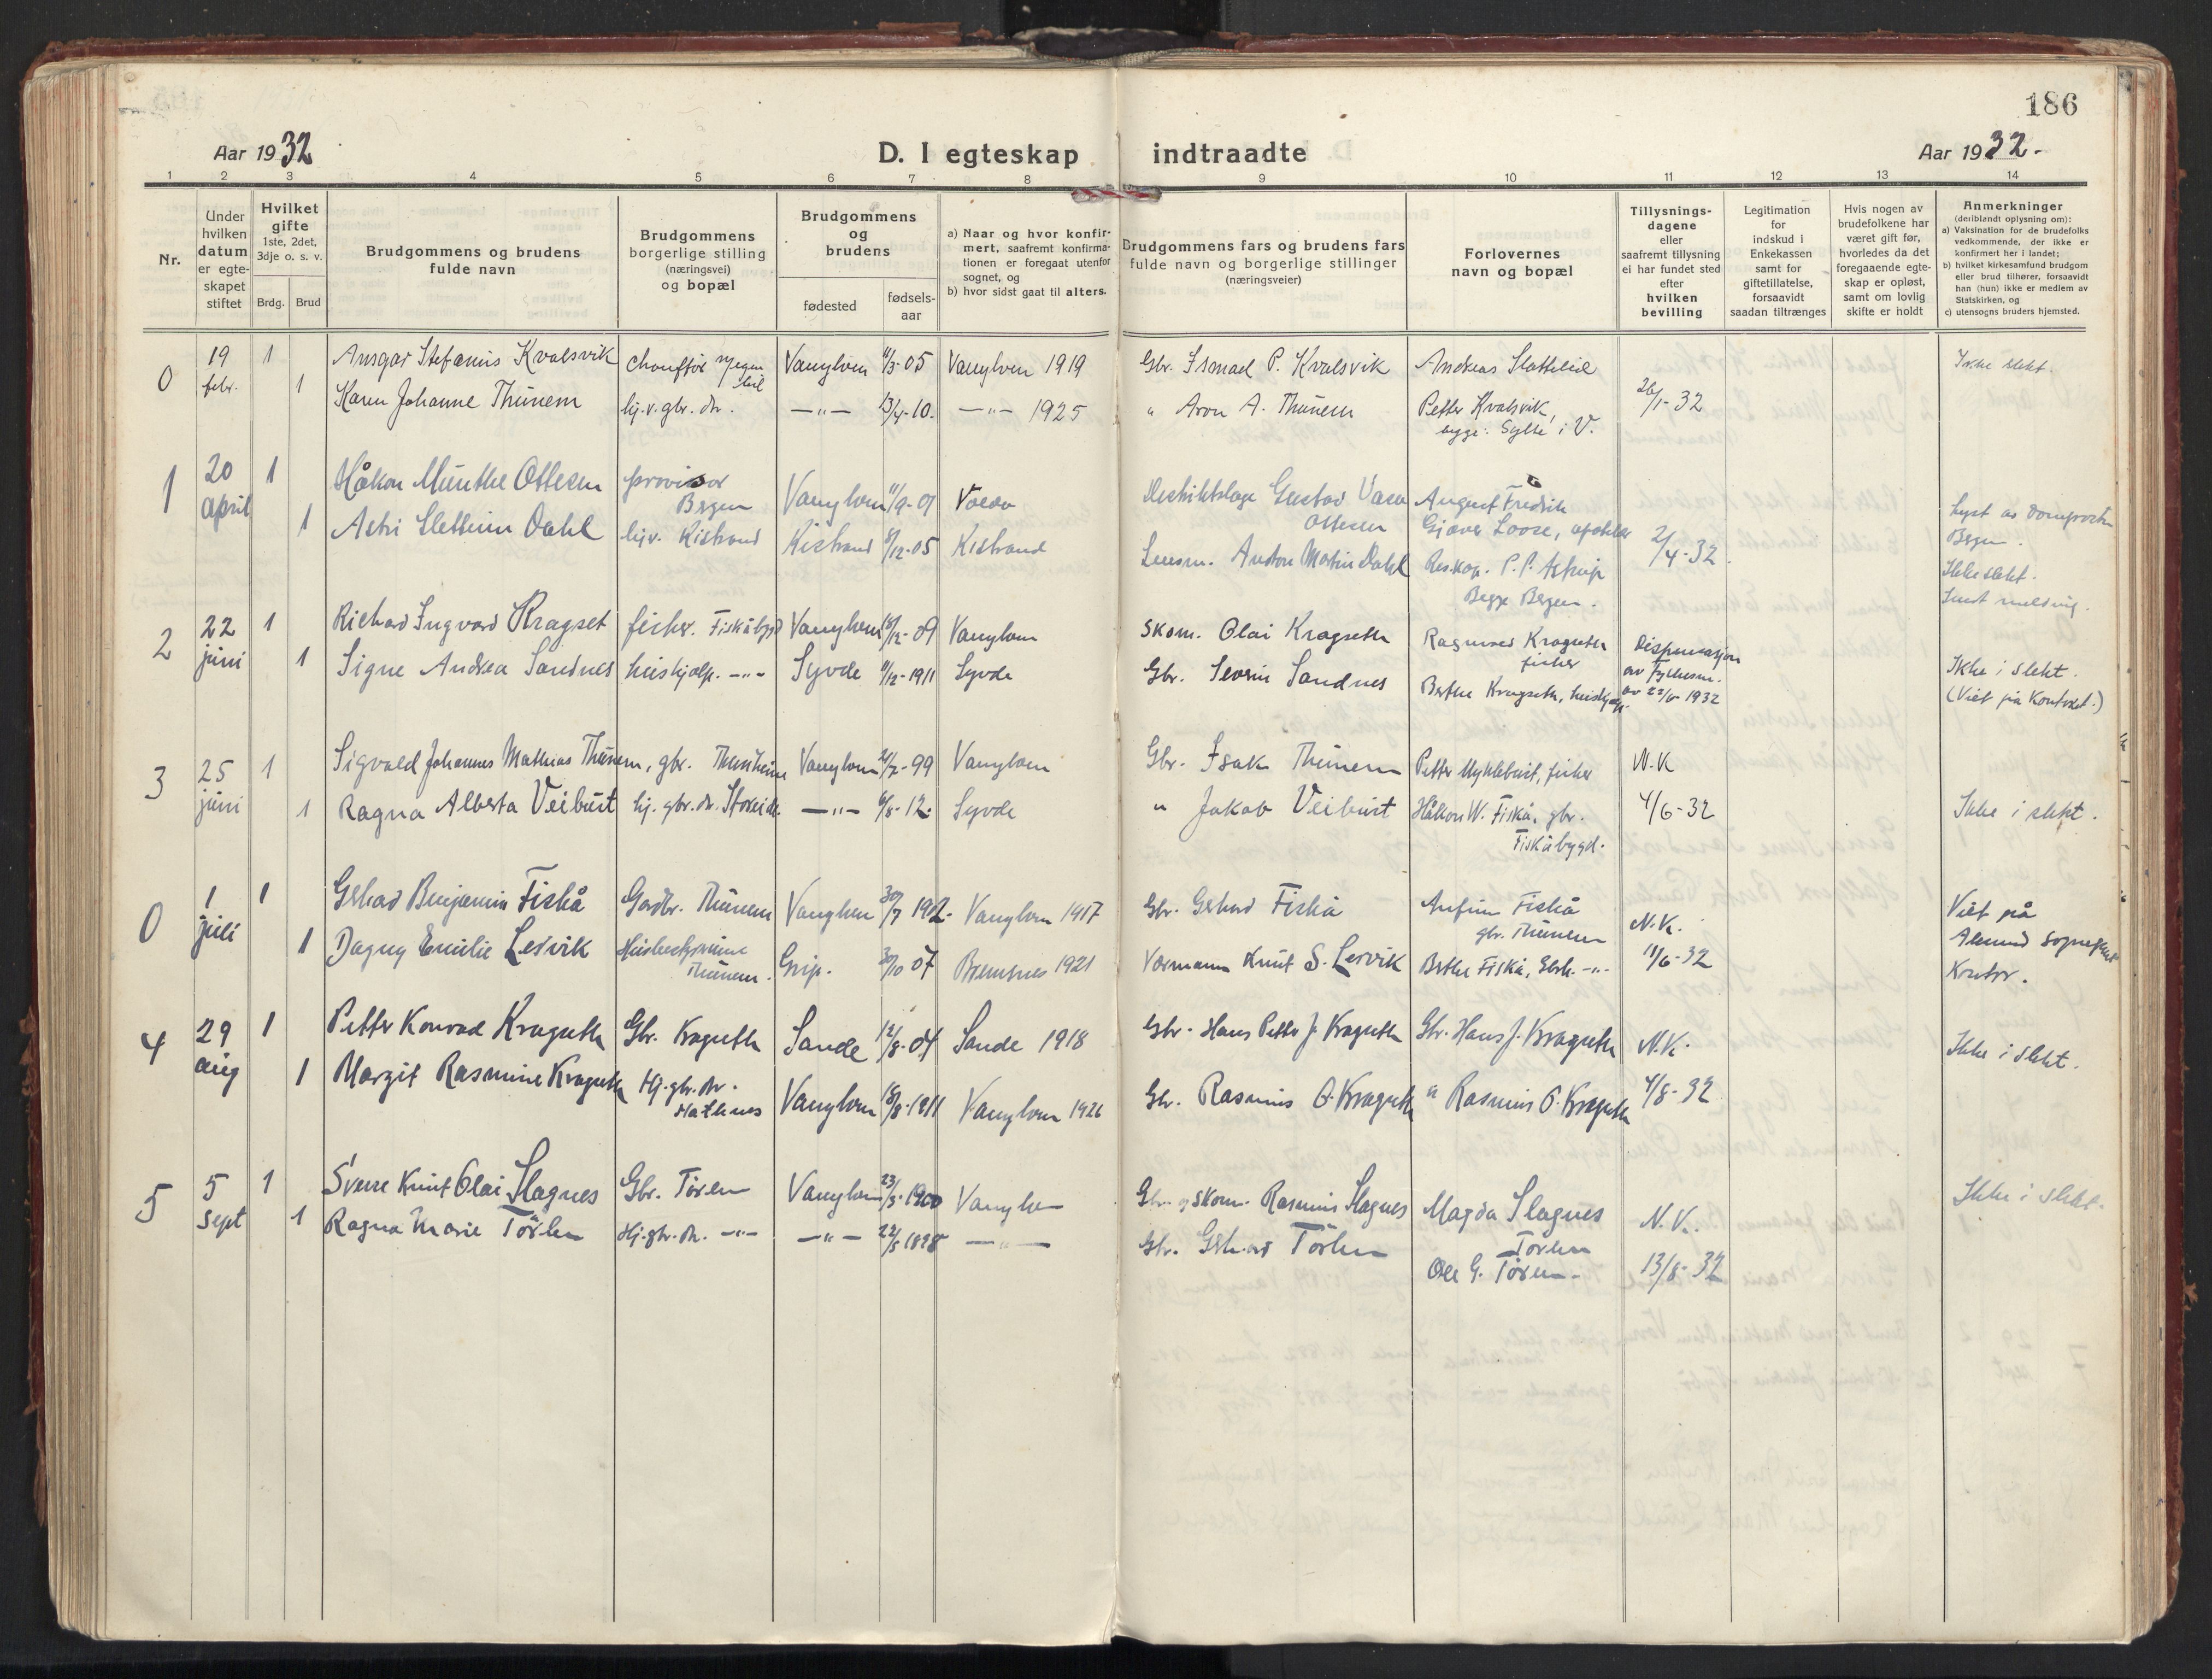 186
Aar 1932
D. I egteskap indtraadte
Aar 1932.
1 2 3 4 5 6 7 8 9 10 11 12 13 14
Nr.
Under
hvilken
datum
er egte-
skapet
stiftet
Hvilket
gifte
1ste, 2det,
3dje o. s. v.
Brdg. Brud
Brudgommens og brudens
fulde navn
Brudgommens
borgerlige stilling
(næringsvei)
og bopæl
Brudgommens
og
brudens
fødested
fødsels-
aar
a) Naar og hvor konfir-
mert, saafremt konfirma-
tionen er foregaat utenfor
sognet, og
b) hvor sidst gaat til alters.
Brudgommens fars og brudens fars
fulde navn og borgerlige stillinger
(næringsveier)
Forlovernes
navn og bopæl
Tillysnings-
dagene
eller
saafremt tillysning
ei har fundet sted
efter
hvilken
bevilling
Legitimation
for
indskud i
Enkekassen
samt for
giftetillatelse,
forsaavidt
saadan tiltrænges
Hvis nogen av
brudefolkene har
været gift før,
hvorledes da det
foregaaende egte-
skap er opløst,
samt om lovlig
skifte er holdt
Anmerkninger
(deriblandt oplysning om):
a) Vaksination for de brudefolks
vedkommende, der ikke er
konfirmert her i landet;
b) hvilket kirkesamfund brudgom
eller brud tilhører, forsaavidt
han (hun) ikke er medlem av
Statskirken, og
c) utensogns bruders hjemsted.
0 19 febr. 1 Ansgar Stefanus Kvalsvik Chauffør Vanylven 05 Vanylven 1919 Gbr. Ismael P. Kvalsvik Andreas Slotteleid Ikke slekt.
1 Karen Johanne Thunem hj. v. gbr. dtr. —"— 13/4-10. —"— 1925 " Aron A. Thunem Petter Kvalsvik, 26/1-32
begge: Sylte i V.
1 20 april 1 Håkon Munthe Ottesen provisor Bergen Vanylven 11/9-01 Distriktslæge Gustav Vasa Ottesen August Fredrik Gjæver Loose,
1 Astri Slettum Dahl hjv. Kistrand Kistrand 12-05 Kistrand Lensm. Anton Martin Dahl Res.kap. P. P. Astrup 2/4-32
Begge Bergen.
Lyst av domprosten
Bergen.
Ikke slekt.
Sendt melding.
2 22 juni 1 Richard Ingvard Kragset fisker. Fiskåbygd Vanylven 12-09 Vanylven Skom. Olai Kragseth Rasmus Kragseth fisker Dispensasjon
1 Signe Andrea Sandnes hushjelp. —"— Syvde 12-1911 Syvde Gbr. Severin Sandnes Berthe Kragseth, hushjelp. av Fylkesm.
1932
Ikke i slekt.
(Viet på Kontoret.)
3 25 juni 1 Sigvald Johannes Mathias Thunem, gbr. Thunheim Vanylven 99 Vanylven Gbr. Isak Thunem Petter Myklebust, fisker N.K
1 Ragna Alberta Veibust hj. gbr. dtr. Stokeide. —"— 6/8-12. Syvde " Jakob Veibust Håkon W. Fiskå, gbr. 4/6-32 Ikke i slekt.
Fiskåbygd.
0 1 juli 1 Gerhard Benjamin Fiskå Gardbr. Thunem Vanylven 30/7 1902. Vanylven 1917 Gbr. Gerhard Fiskå Anfinn Fiskå gbr. Thunem N.K.
1 Dagny Emilie Lervik Husbestyrerinne Thunem. Grip. 30/10 07 Bremsnes 1921 Vormann Knut S. Lervik Berthe Fiskå, —"— 11/6-32
Viet på
Ålesund sogneprest
Kontor.
4 29 aug 1 Petter Konrad Kragseth Gbr. Kragseth Sande 12/8-04 Sande 1918 Gbr. Hans Petter J. Kragseth Gbr. Hans J. Kragseth N.K.
1 Margit Rasmine Kragseth Hj. gbr. dtr. Vanylven 18/8-1911 Vanylven 1926 Gbr. Rasmus O. Kragseth " Rasmus O. Kragseth 4/8-32 Ikke i slekt.
5 5 sept 1 Sverre Knut Olai Slagnes Gbr. Tørlen Vanylven 23/3-1900 Vanylven Gbr. og skom. Rasmus Slagnes Magda Slagnes N.K. Ikke i slekt.
1 Ragna Marie Tørlen Hj. gbr. dtr. —"— —"— 22/5 1898 —"— Gbr. Gerhard Tørlen Tørlen
Ole G. Tørlen. 13/8-32